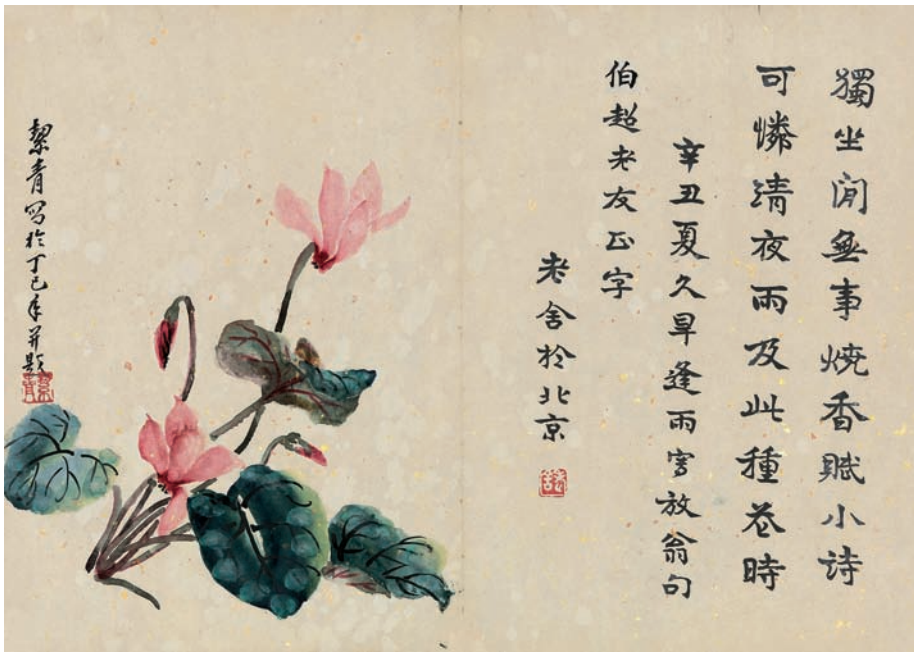 獨坐閒無事燒香賦小詩
可憐清夜雨及此種花時
辛丑夏久旱逢雨寫放翁句
伯超老友正字
老舍於北京
老舍
絜青寫於丁巳年并題
絜青